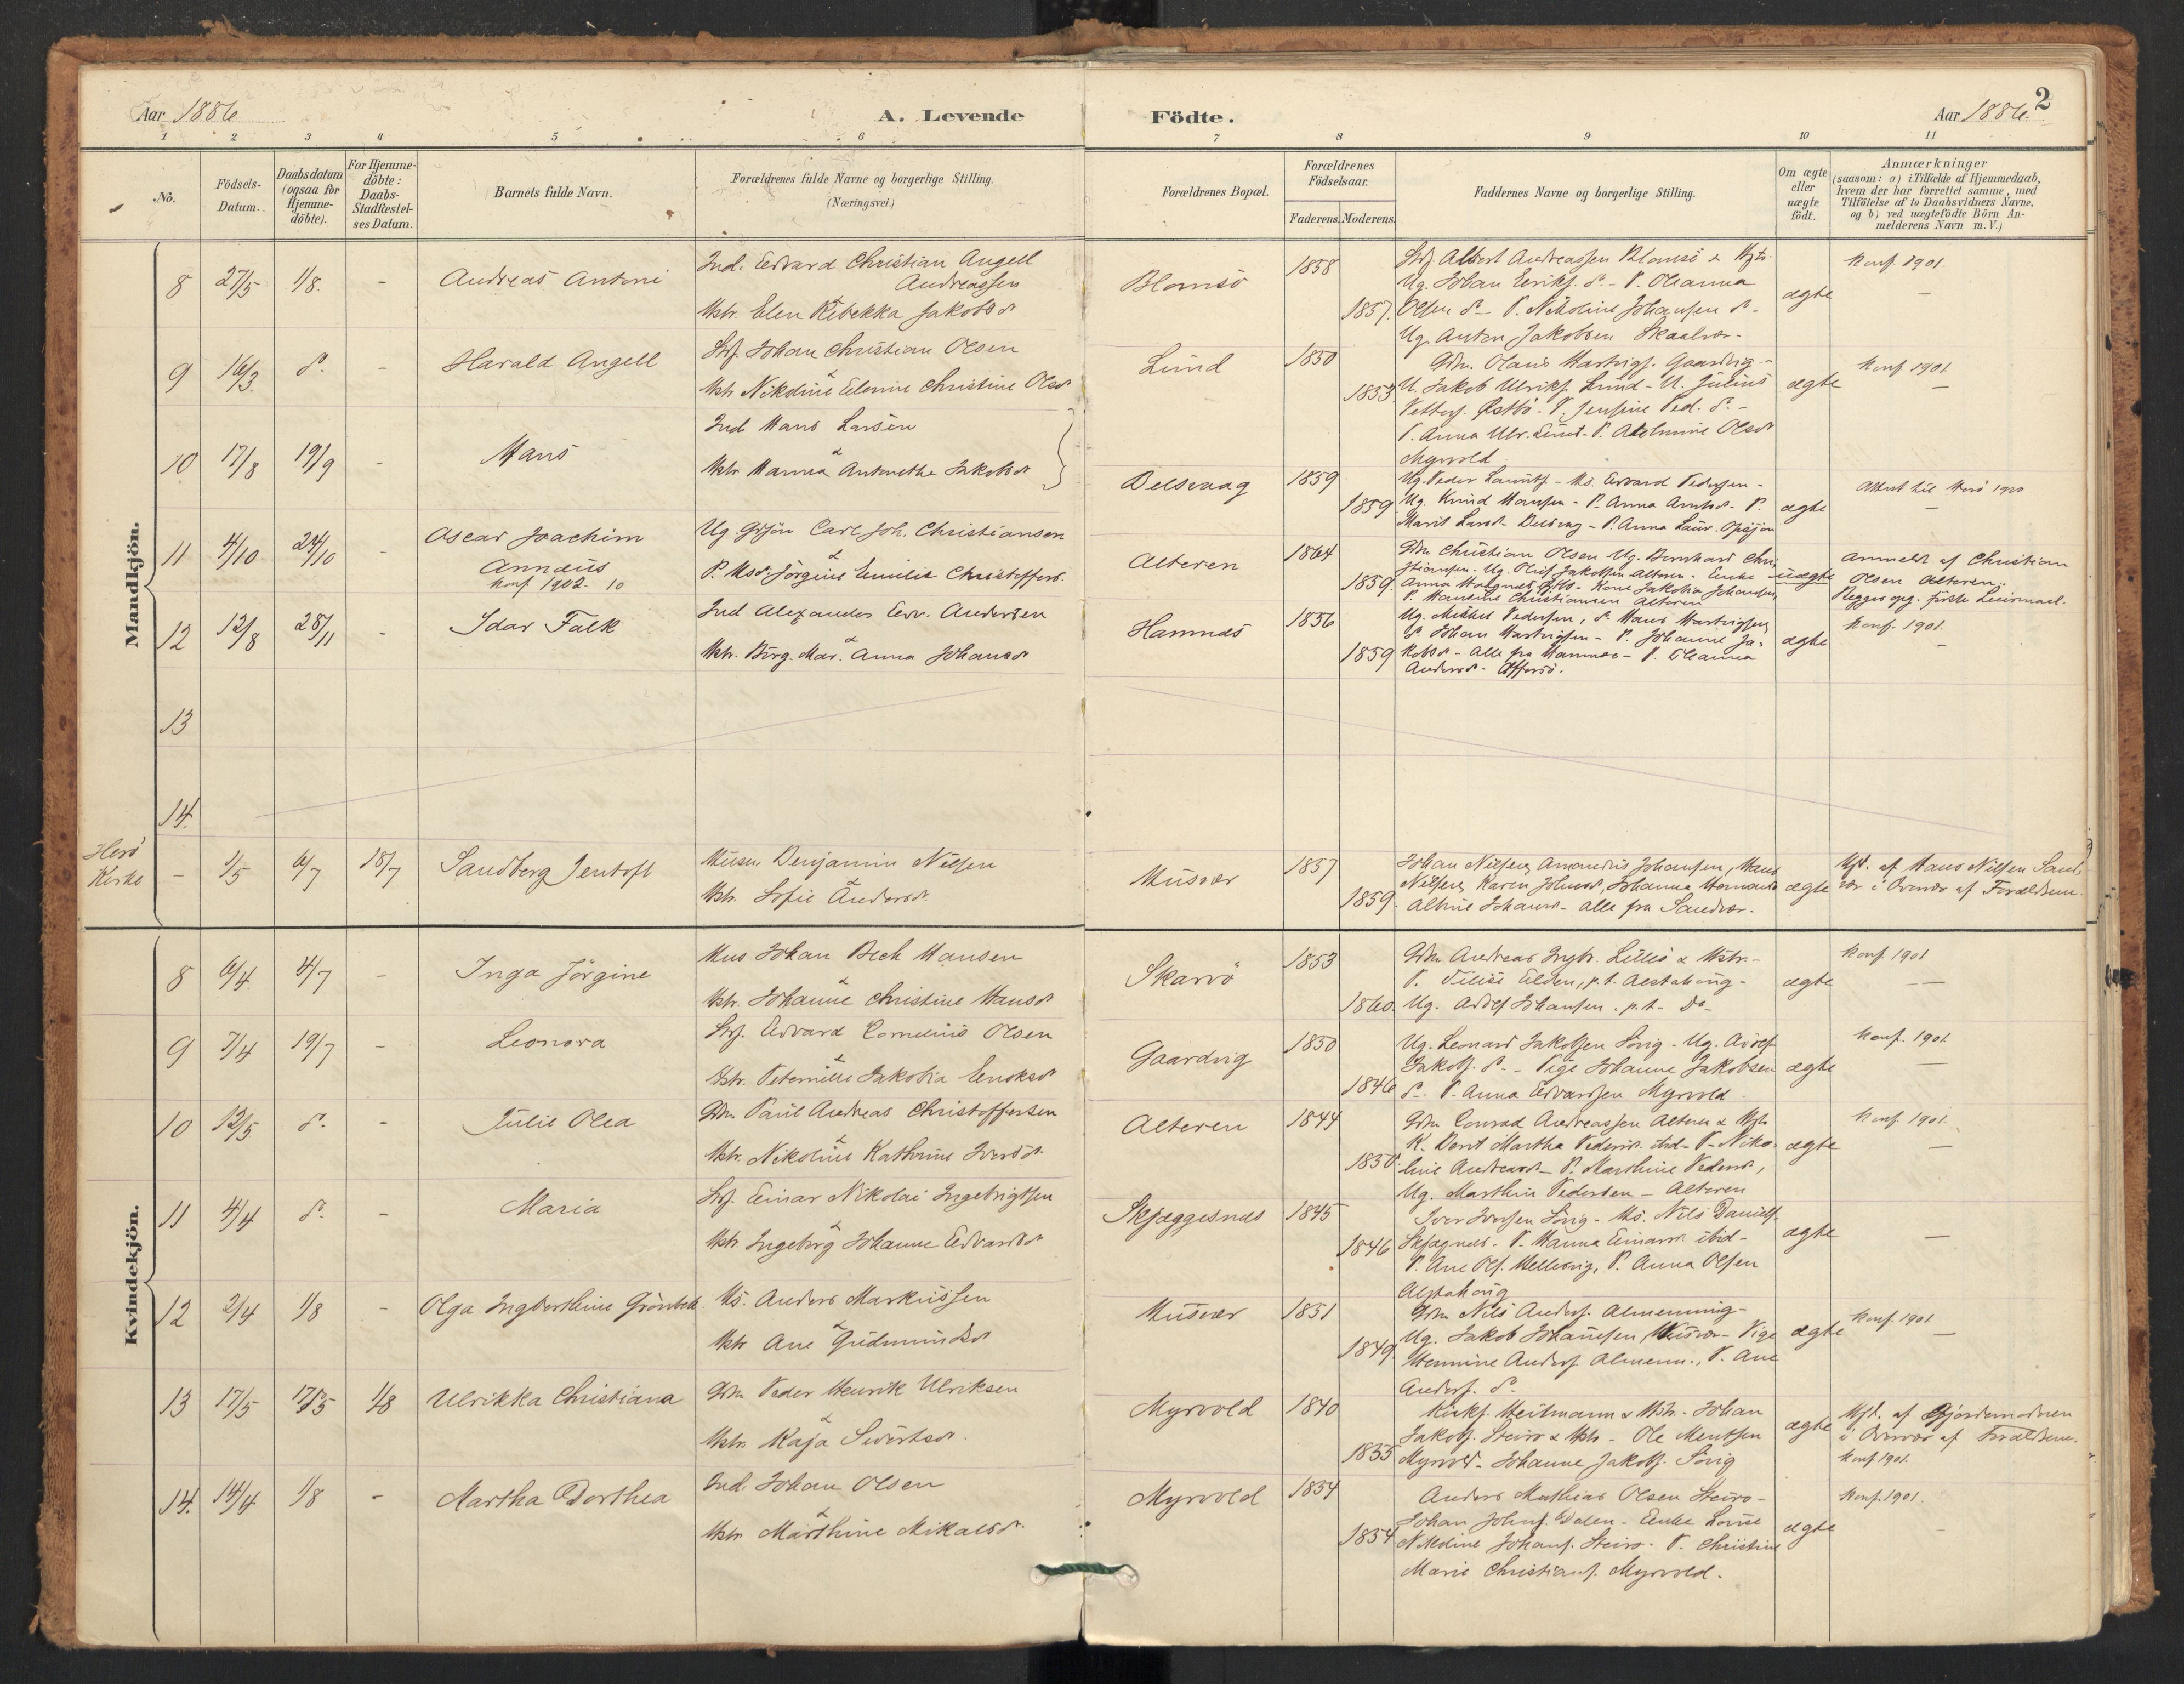 Aar 1886
A. Levende
Födte.
Aar 1886.
2
1 2 3 4 5 6 7 8 9 10 11
No.
Födsels-
Datum.
Daabsdatum
(ogsaa for
Hjemme-
döbte).
For Hjemme-
döbte:
Daabs-
Stadfæstel-
ses Datum.
Barnets fulde Navn.
Forældrenes fulde Navne og borgerlige Stilling.
(Næringsvei.)
Forældrenes Bopæl.
Forældrenes
Födselsaar.
Faderens. Moderens.
Faddernes Navne og borgerlige Stilling.
Om ægte
eller
uægte
födt.
Anmærkninger
(saasom: a) i Tilfælde af Hjemmedaab,
hvem der har forrettet samme, med
Tilföielse af to Daabsvidners Navne.
og b) ved uægtefödte Börn An-
melderens Navn m.V.)
Mandkjön.
8 27/5 1/8. - Andreas Antoni
Ind. Edvard Christian Angell
Andreassen
&
Hstr. Elen Rebekka Jakobsd
Blomsö
1858
1857.
Albert Andreassen Blomsö & Hstr.
Ug. Johan Eriks. do - P. Oleanna
Olsen do - P. Nikoline Johansen do -
Ug. Anton Jakobsen Skaalvær.
ægte
Konf. 1901.
-
9 16/3. do. - Harald Angell
Johan Christian Olsen
&
Hstr Nikoline Elenine Christine Olsd
Lund
1850
1853
Gdm. Olaus Hartvigs. Gaardvig -
U. Jakob Ulriks. Lund - U. Julius
Østbö - P. Jensine Ped. do. -
P. Anna Ulr. Lund - P. Olsd
Myrvold
ægte
Konf 1901.
-
10 17/8 19/9 - Hans
Ind Hans Larsen
&
Hstr Hanna Antonethe Jakobsd
Belsvaag
1859
1859
Ug. Peder Laurits. - Hs. Edvard Pedersen -
Ug. Knud Hansen - P. Anna - P.
Marit Larsd. Belsvag - P. Anna Laur.
ægte
Attest til Herö 1900
-
11 4/10 24/10 - Oscar Joachim
Annæus
Konf 1902. 10
Ug. Carl Joh. Christiansen
&
P. Jörgine Emilie Christoffers.
Alteren
1864
1859.
Gdm Christian Olsen Ug. Bernhard Chri-
stiansen - Ug. Oluf Jakobsen Alteren. Enke
Anna - Kone Jakobia Johansen
P. Hansine Christiansen Alteren
uægte
Anmeldt af Christian
Olsen Alteren.
Begges opg. förste Leiermaal.
12 12/8 28/11 - Idar Falk
Ind Alexander Edv. Andersen
&
Hstr. Birg. Mar. Anna Johansd
Hamnæs
1856
1859
Ug. Mikkel Pedersen, do Hans Hartvigsen,
do Johan Hartvigsen - P. Johanne Ja-
kobsd - alle fra Hamnæs - P. Oleanna
Andersd - Offersö.
ægte
Konf. 1901.
-
13
14.
Herö
Kirke
- 1/5 6/7 18/7 Sandberg Jentoft
Husm. Benjamin Nilsen
&
Hstr. Sofie Andersd.
Husvær
1857
1859.
Johan Nilsen, Amandus Johansen, Hans
Nilsen, Karen Johnsd, Johanna Hermansd
Albine Johansd - alle fra Sandvær.
ægte
Hjd. af Hans Nilsen Sand-
vær i Overvær af Forældrene.
Kvindekjön.
8 6/4. 4/7 - Inga Jörgine
Hus Johan Bech Hansen
&
Hstr. Johanne Christine Hansd
Skarvö
1853
1860.
Gdm Andreas Ingbr. Lillö & Hstr. -
P. Elden, p.t. Alstahaug -
Ug. Adolf Johansen. p.t. Do -
ægte
Konf 1901
-
9 7/4 19/7 - Leonora
Edvard Cornelius Olsen
&
Hstr. Peternille Jakobia Enoksd
Gaardvig
1850
1846
Ug. Leonard Jakobsen Sörig - Ug. Adolf
Jakobs. do. - Pige Johanne Jakobsen
do. P. Anna Edvardsen Myrvold
ægte
Konf. 1901.
-
10 12/5 do. - Julie Olea
Gdm. Paul Andreas Christoffersen
&
Hstr. Nikoline Kathrine Iversd.
Alteren
1844
1850.
Gdm Conrad Andreassen Alteren & Hstr
K. Berit Martha Pedersd. ibid - P. Niko-
line Andreasd - P. Marthine Pedersd,
Ug. Marthin Pedersen - Alteren
ægte
Konf 1901.
-
11 4/4 do. - Maria
Einar Nikolai Ingebrigtsen
&
Hstr Ingeborg Johanne Edvardsd
Skjæggesnæs
1845
1846
Iver Iversen Sörig - Hs. Nils Daniels.
Skjægnæs - P. Hanna Einarsd ibid -
P. Ane Ols. Hellesvig, P. Anna Olsen
Alstahaug
ægte
-
12 2/4 1/8 - Olga Ingborthine Grönbech
Hs. Anders Markussen
&
Hstr Ane Gudmundsd
Husvær
1851
1849.
Gdm Nils Anders. Almenning -
Ug. Jakob Johansen Husvær - Pige
Hermine Anders. Almenn., P. Ane
Anders. do.
ægte
Konf. 1901.
-
13 17/5 17/5 1/8 Ulrikka Christiana
Gdm Peder Henrik Ulriksen
&
Hstr. Kaja Sivertsd.
Myrvold
1840
1855
Kirks. Heitmann & Hstr. - Johan
Jakobs. Steiro & Hstr - Ole Mentsen
Myrvold - Johanne Jakobs. Sörig
ægte
Hjd. af Gjordemoderen
i Overvær af Forældrene.
Konf 1901.
14. 14/4 1/8 - Martha Dorthea
Ind. Johan Olsen
&
Hstr Marthine Mikalsd.
Myrvold
1854
1854
Anders Mathias Olsen Steiro -
Johan Johns. Dalen - Enke Lovise
Nikoline Johans. Steiro - P. Christine
Marie Christians. Myrvold.
ægte
Konf. 1901.
-